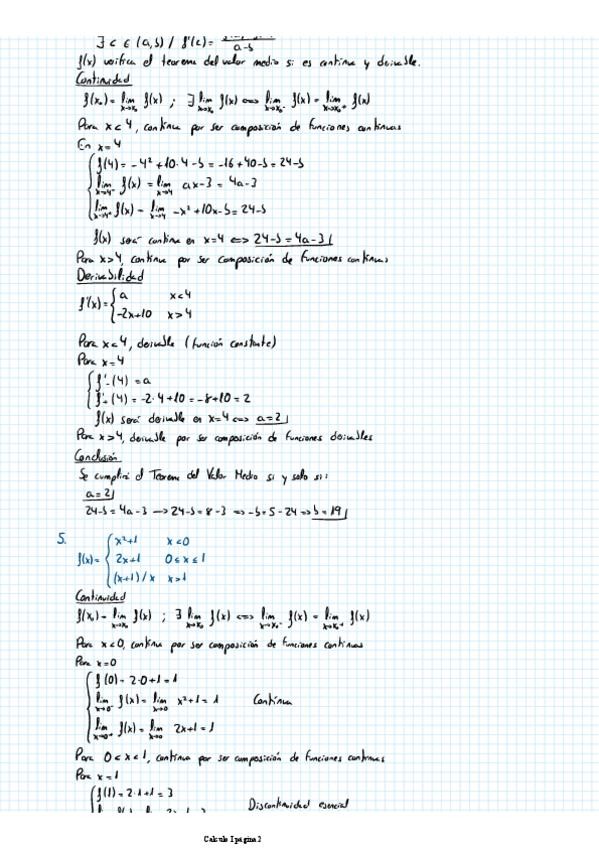 ∃ c ∈ (a,b) / f'(c) = a-b
f(x) verifica el teorema del valor medio si es continua y derivable.
Continuidad
f(x₀) = lim x→x₀ f(x) ; ∃ lim x→x₀ f(x) ⟺ lim x→x₀⁻ f(x) = lim x→x₀⁺ f(x)
Para x<4, continua por ser composición de funciones continuas
En x=4
f(4) = -4²+10·4-b = -16+40-b = 24-b
lim x→4⁻ f(x) = lim x→4 ax-3 = 4a-3
lim x→4⁺ f(x) = lim x→4 -x²+10x-b = 24-b
f(x) será continua en x=4 ⟺ 24-b = 4a-3
Para x>4, continua por ser composición de funciones continuas
Derivabilidad
f'(x) = { a x<4
-2x+10 x>4
Para x<4, derivable (función constante)
Para x=4
f'₋(4) = a
f'₊(4) = -2·4+10 = -8+10 = 2
f(x) será derivable en x=4 ⟺ a=2
Para x>4, derivable por ser composición de funciones derivables
Conclusión
Se cumplirá el Teorema del Valor Medio si y solo si:
a=2
24-b = 4a-3 → 24-b = 8-3 → -b = 5-24 ⇒ b=19
5.
f(x) = { x²+1 x<0
2x+1 0≤x≤1
(x+1)/x x>1
Continuidad
f(x₀) = lim x→x₀ f(x) ; ∃ lim x→x₀ f(x) ⟺ lim x→x₀⁻ f(x) = lim x→x₀⁺ f(x)
Para x<0, continua por ser composición de funciones continuas
Para x=0
f(0) = 2·0+1 = 1
lim x→0⁻ f(x) = lim x→0 x²+1 = 1 Continua
lim x→0⁺ f(x) = lim x→0 2x+1 = 1
Para 0<x<1, continua por ser composición de funciones continuas
Para x=1
f(1) = 2·1+1 = 3
Discontinuidad esencial
Calculo I página 2